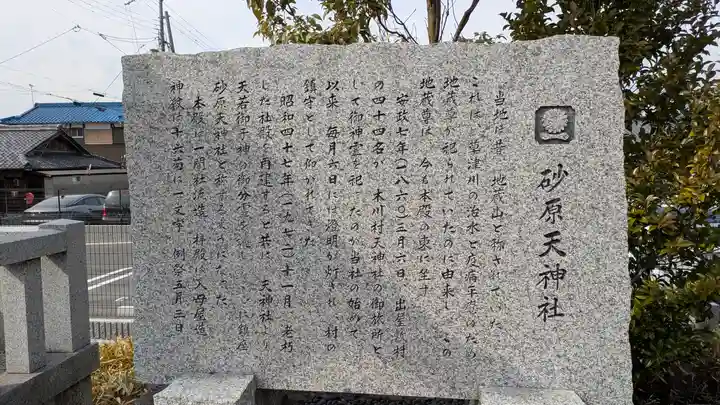 砂原天神社
当地は昔 地蔵山と称されていた
これは 草津川の治水と疫病平癒のため
地蔵尊が祀られていたのに由来し その
地蔵尊は 今も本殿の東に坐す
安政七年(一八六〇)三月六日 出屋敷村
の四十四名が 木川村天神社の御旅所と
して御神霊を祀ったのが当社の始めで
以来 毎月六日には燈明が灯され 村の
鎮守として仰がれてきた
昭和四十七年(一九七二)十一月 老朽
した社殿を再建すると共に 天神社より
天若御子神の御分霊を
砂原天神社と称するようになった
本殿は一間社流造 拝殿は入母屋造
神紋は十六菊に一文字 例祭五月三日